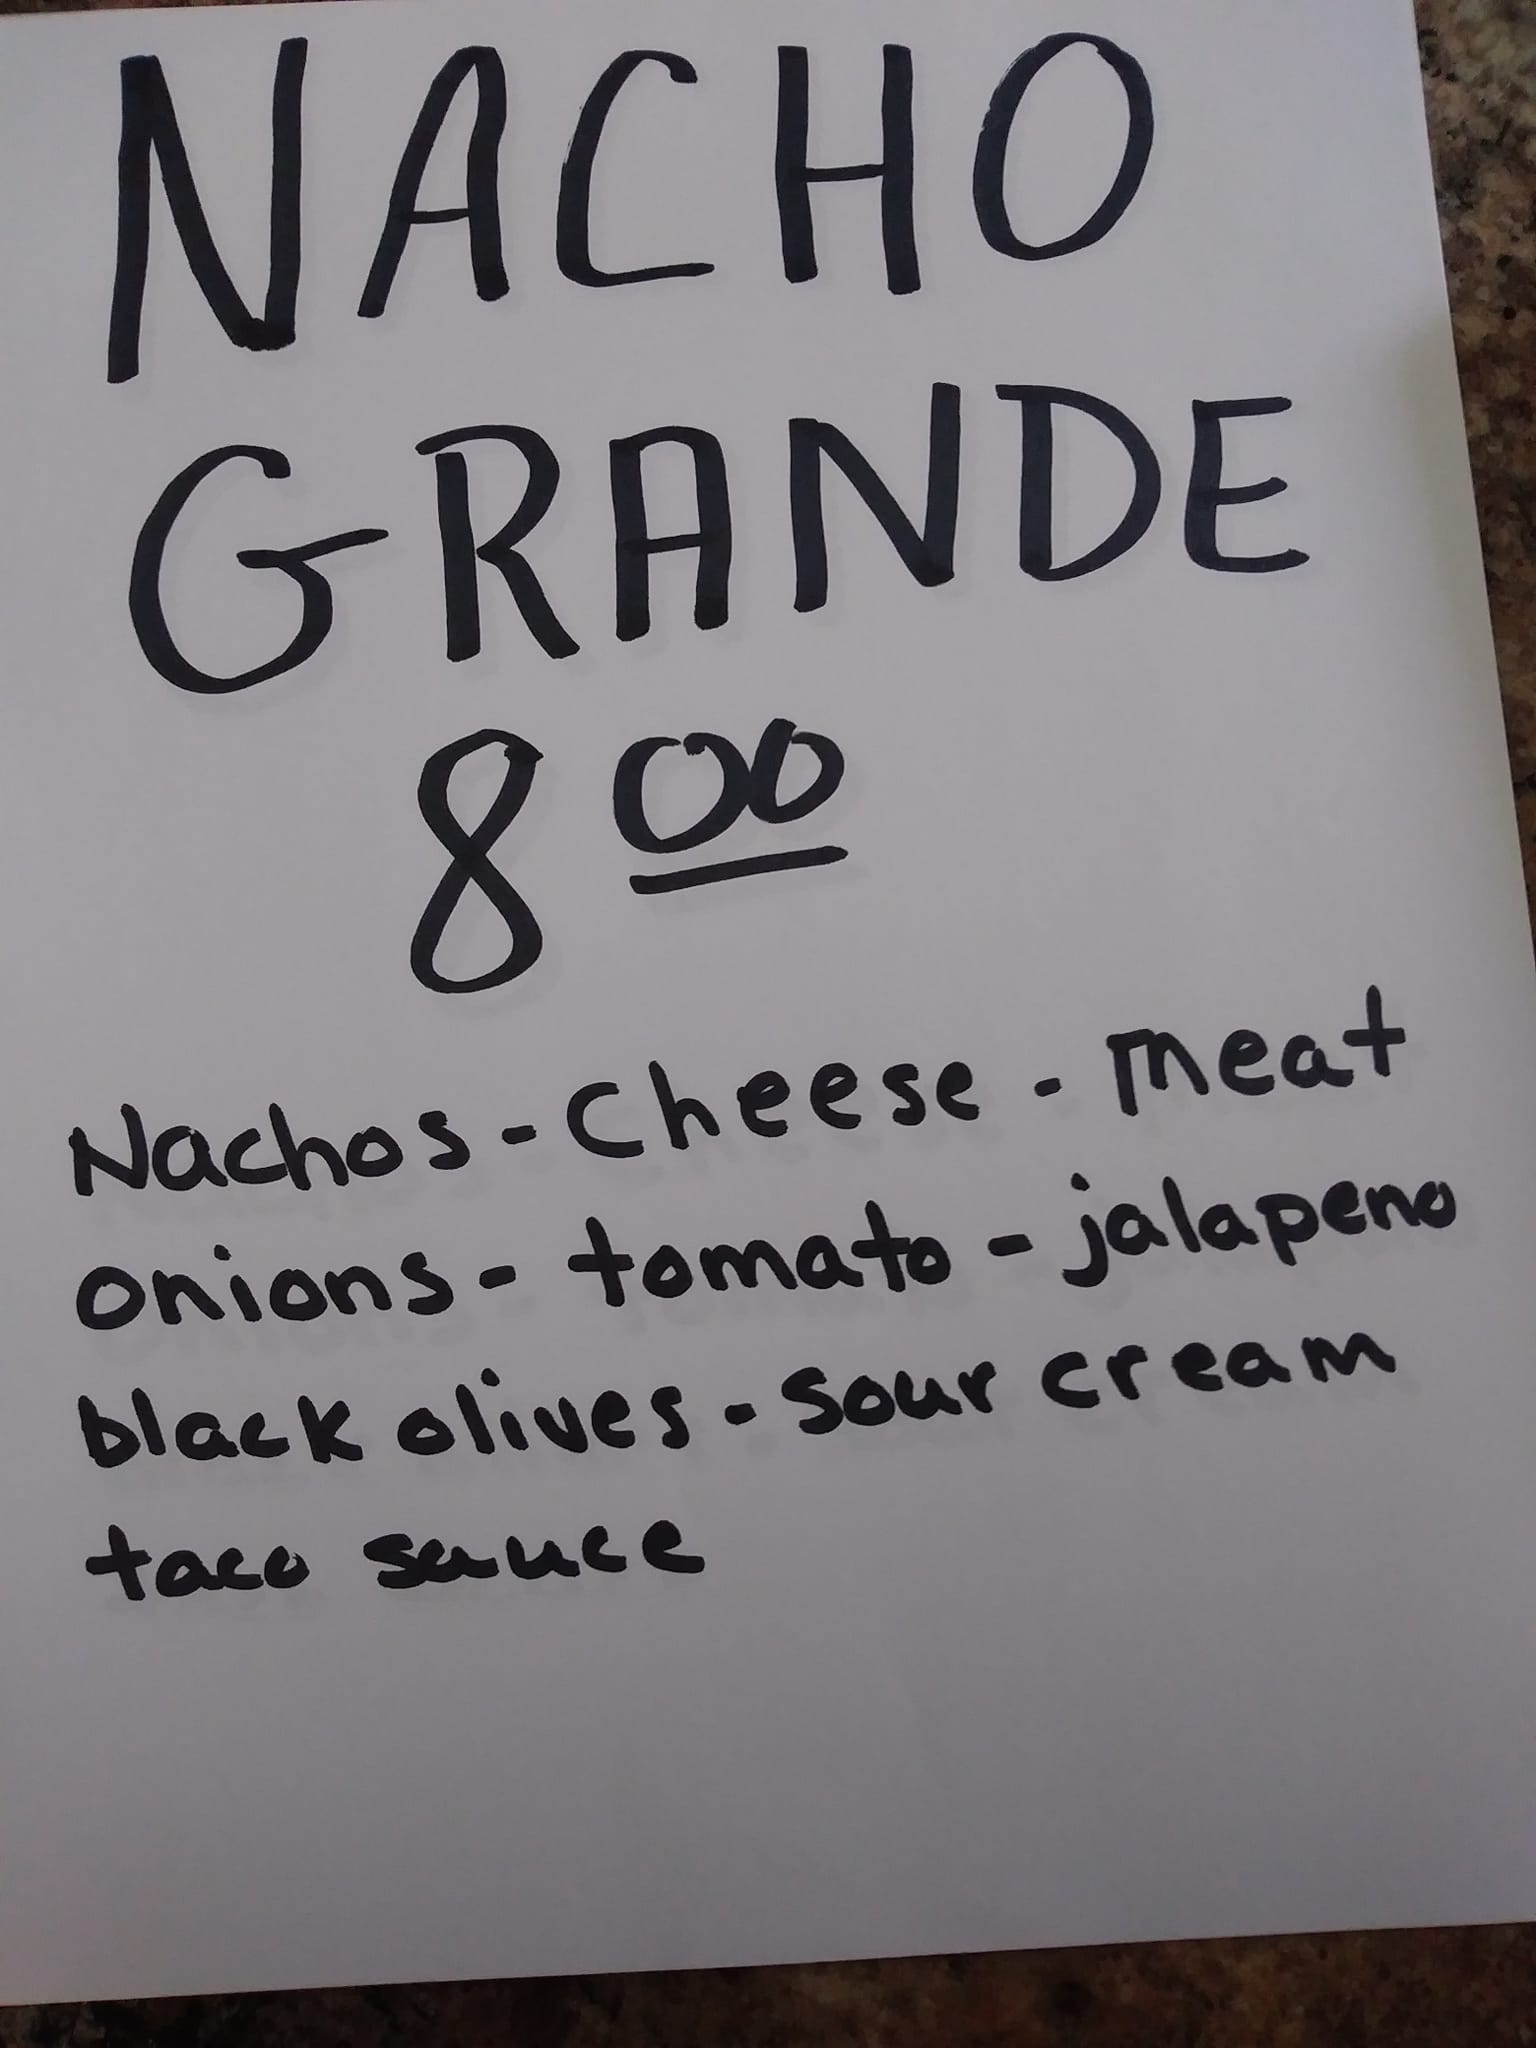 NACHO
GRANDE
8 00
Nachos - Cheese - Meat
onions - tomato - jalapeno
black olives - sour cream
taco sauce